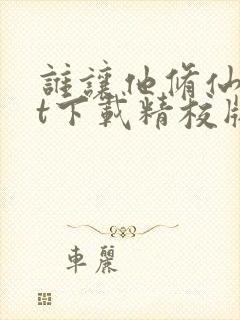 誰讓他修仙
t下載精校版
車麗